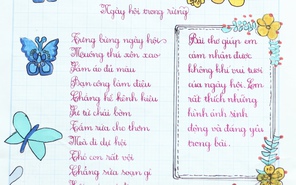 Ngày hội trong rừng
Tưng bừng ngày hội
Muông thú xôn xao
Tắm áo đủ màu
Bạn công làm điệu
Chẳng hề kênh kiệu
Tê tê chải bờm
Tắm sửa cho thơm
Mưa đi dự hội
Thỏ con rất vội
Chẳng sửa soạn gì
Bài thơ giúp em
cảm nhận được
không khí vui tươi
của ngày hội. Em
rất thích những
hình ảnh sinh
động và đáng yêu
trong bài.